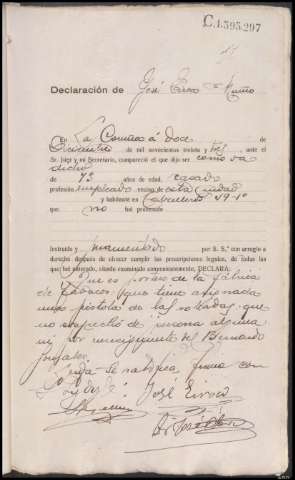 C.1.595.297
Declaración de José Muiño
En La Coruña á doce de
Diciembre de mil novecientos treinta y tres ante el
Sr. Juez y mi Secretario, compareció el que dijo ser como va
dicho
de 43 años de edad, casado
profesión empleado vecino de esta ciudad
y habitante en 19-1º
que no fué procesado
Instruído y juramentado por S. Sª con arreglo a
derecho después de ofrecer cumplir las prescripciones legales, de todas las
que fué enterado, siendo examinado convenientemente, DECLARA:
Que es portero de la fábrica
de tabacos y que tiene asignada
una pistola de las robadas, que
no sospecha de persona alguna
ni por consiguiente del Bernardo
González.
Leída se ratifica, firma con
José